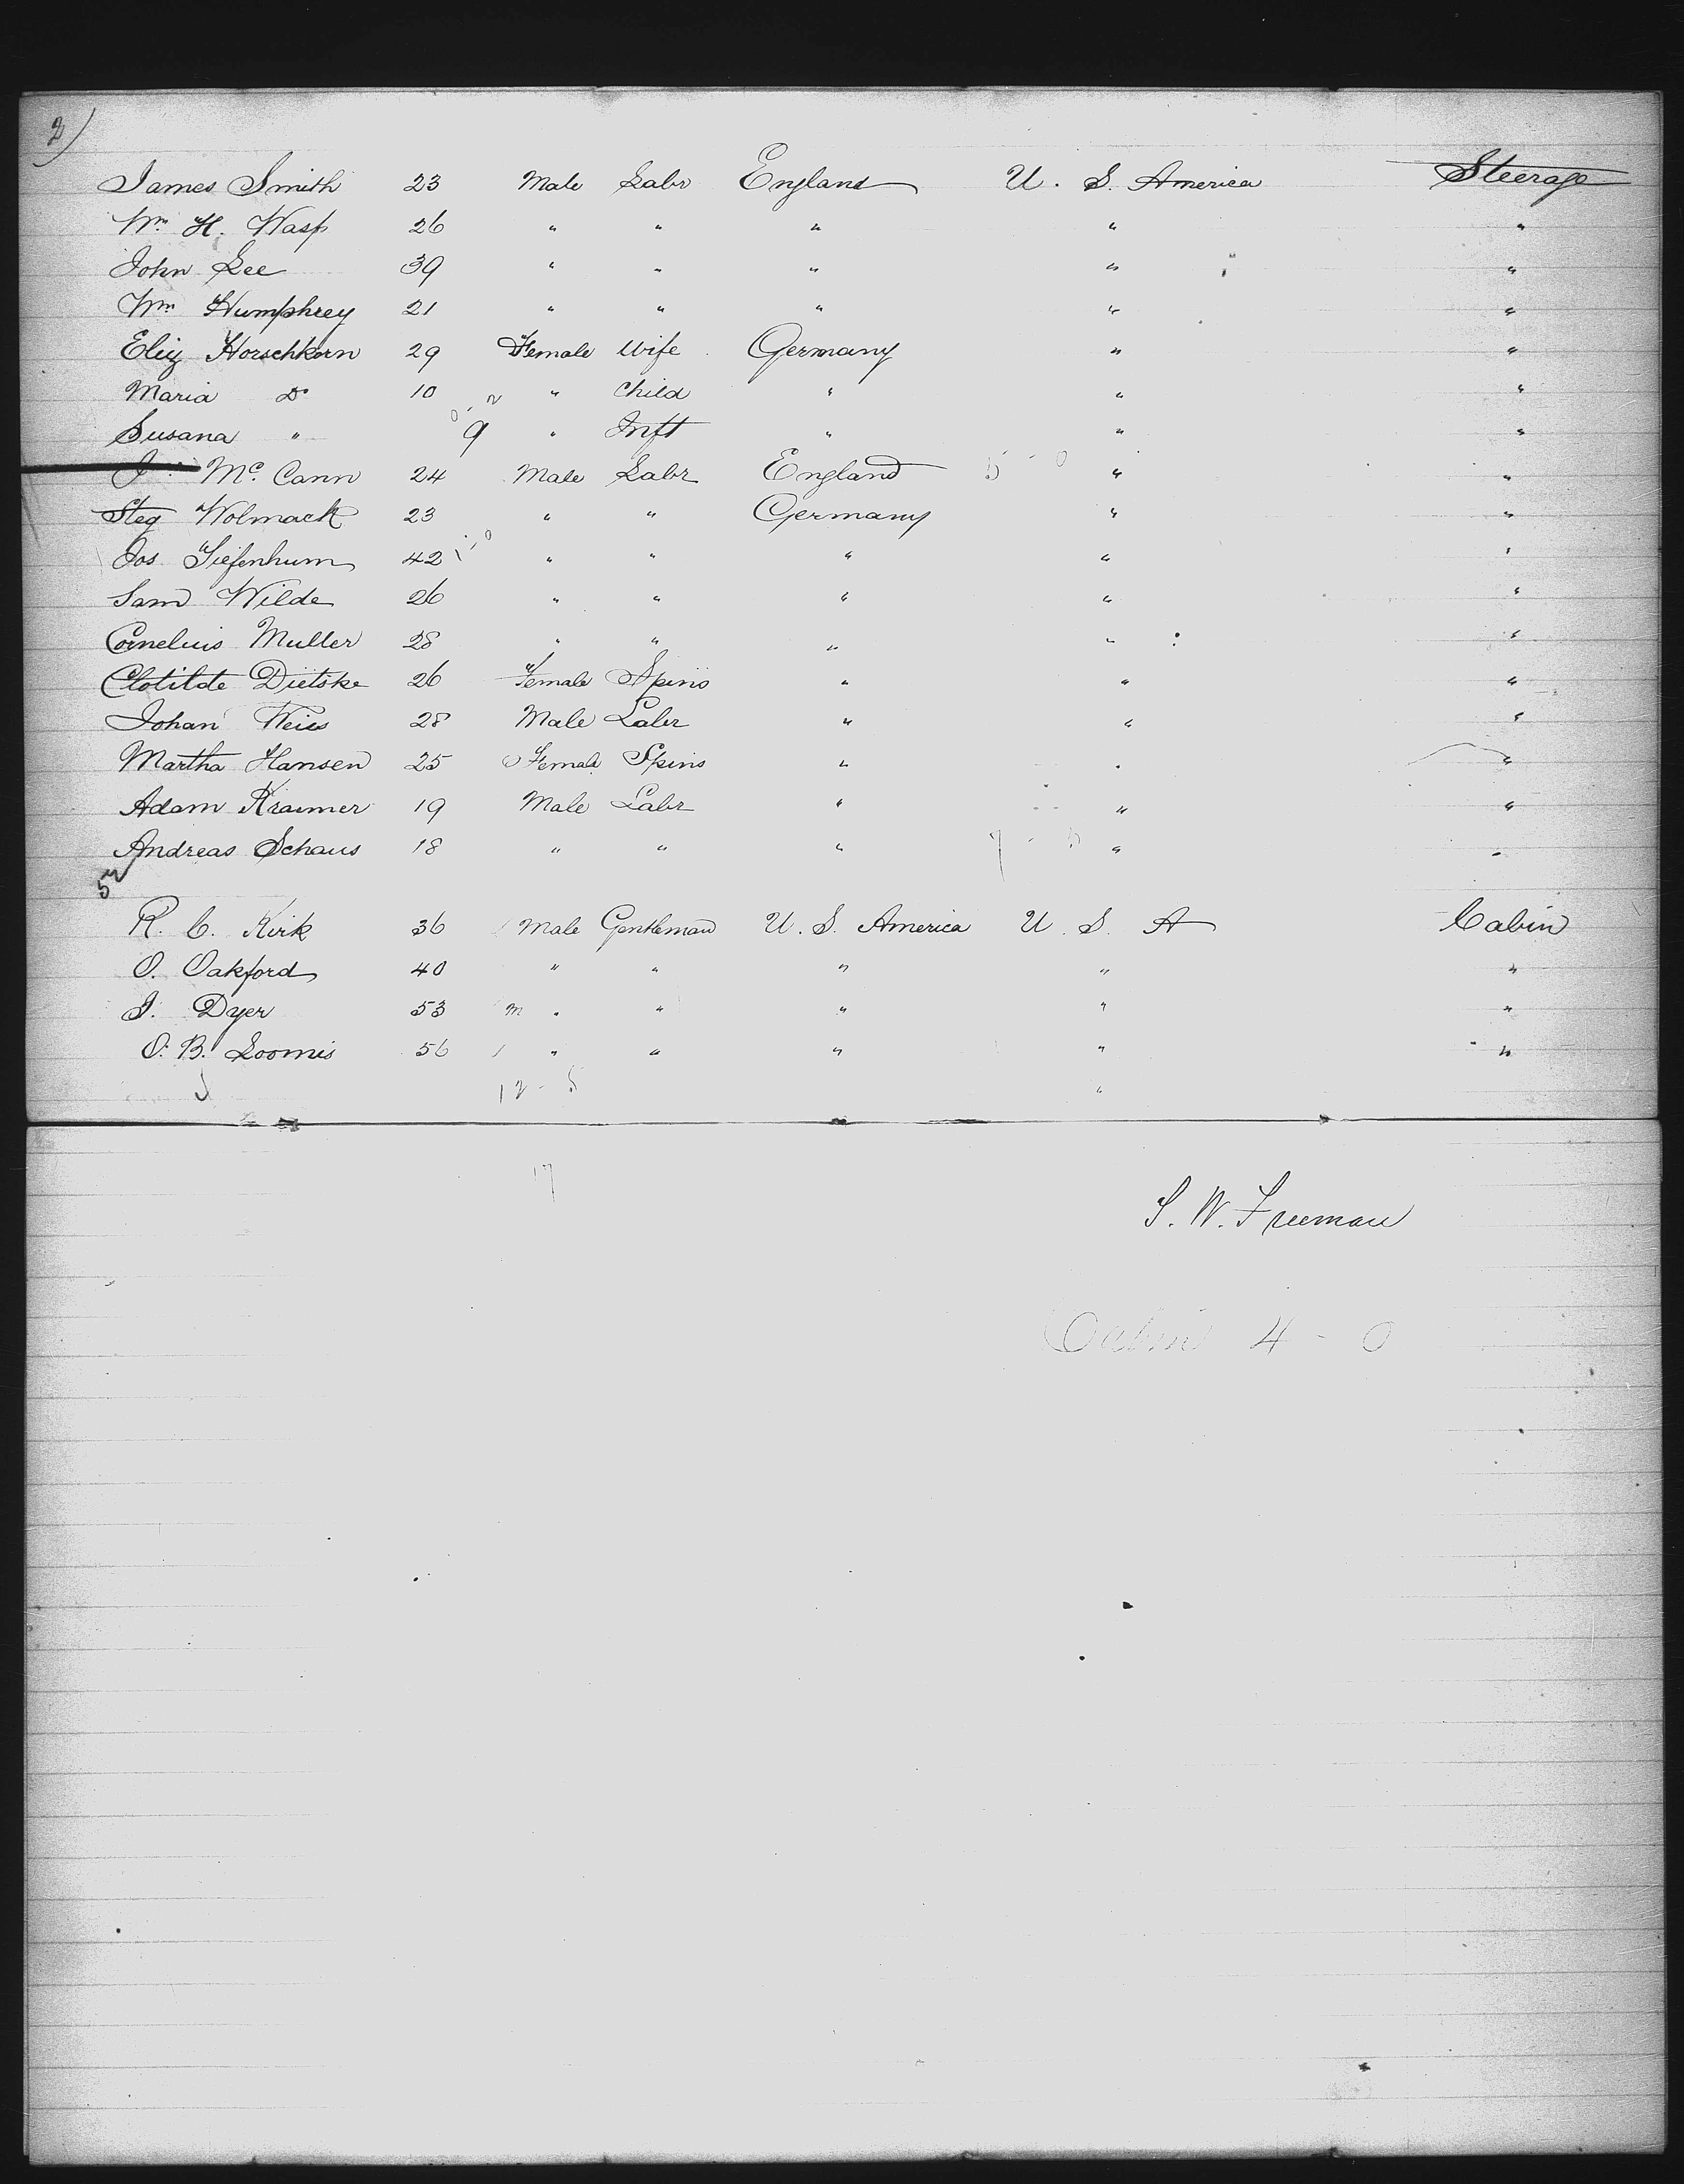 2)
James Smith 23 Male Labr England U. S. America Steerage
Wm H. Wasp 26 " " " " "
John Lee 39 " " " " "
Wm Humphrey 21 " " " " "
Eliz Horschkorn 29 Female Wife Germany " "
Maria Do 10 " Child " " "
Susana " 9 " Inft " " "
Mc Cann 24 Male Labr England " "
Steg Wolmack 23 " " Germany " "
Jos Tiefenhum 42 " " " " "
Saml Wilde 26 " " " " "
Cornelius Muller 28 " " " " "
Clotilde Dietske 26 Female Spins " " "
Johan Weiss 28 Male Labr " " "
Martha Hansen 25 Female Spins " " "
Adam Kraimer 19 Male Labr " " "
Andreas Schaus 18 " " " " "
52
R. C. Kirk 36 Male Gentleman U. S. America U. S. A Cabin
O. Oakford 40 " " " " "
J. Dyer 53 m " " " " "
O. B. Loomis 56 " " " " "
12 - 5 "
17
S. W. Freeman
Cabin 4 - 0